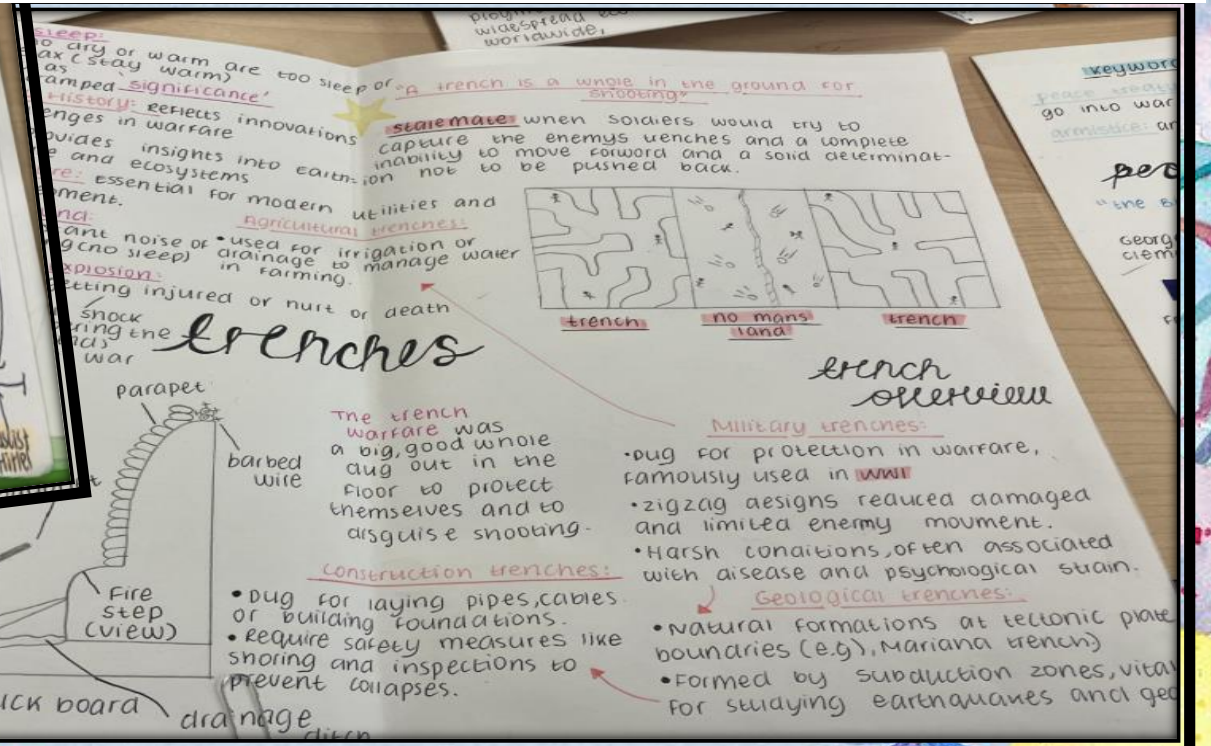 widespread
worldwide,
sleep:
dry or warm are too sleep or
(stay warm)
as
significance'
History: Reflects innovations
in warfare
insights into earth
and ecosystems
Essential for modern utilities and
"A trench is a whole in the ground for
shooting"
stalemate when soldiers would try to
capture the enemys uenches and a complete
inability to move forword and a solid determinat-
ion not to be pushed back.
Agricultural trenches:
• used for irrigation or
drainage to manage water
in farming.
noise of
(no sleep)
injured or nurt or death
shock
the
war
trenches
trench
no mans
land
trench
trench
overview
parapet
barbed
wire
Fire
step
(view)
board
drainage
ditch
The trench
warfare was
a big, good whole
dug out in the
floor to protect
themselves and to
disguise shooting.
Construction trenches:
• Dug for laying pipes, cables
or building foundations.
• Require safety measures like
shoring and inspections to
prevent collapses.
Military trenches:
• Dug for protection in warfare,
famously used in WW1
• zigzag designs reduced damaged
and limited enemy moument.
• Harsh conditions, often associated
with disease and psychological strain.
Geological trenches:
• Natural formations at tectonic plate
boundries (e.g), Mariana trench)
• Formed by subduction zones, vital
for studying earthquakes and
peace
go into war
armistice:
"the